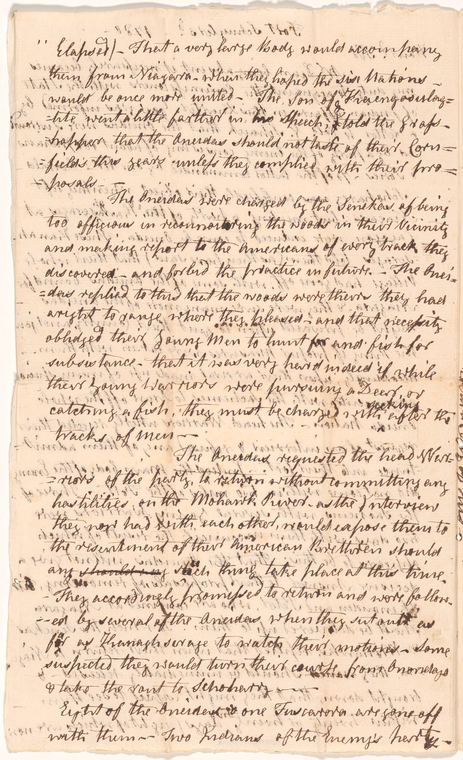 " Elapsed) - That a very large Body would accompany
them from Niagara - when they hoped the six Nations -
would be once more united - The Son of
-tite went a little farther in his Speech, & told the Grass-
-hopper that the Oneidas should not taste of their Corn=
fields this year unless they complied with their pro=
-posals -
The Oneidas were charged by the Senekas of being
too officious in reconnoitring the woods in their Vicinity
and making report to the Americans of every track they
discovered - and forbid the practice in future. - The Onei-
=das replied to this that the woods were theirs they had
a right to range where they pleased - and that necessity
obliedged their young Men to hunt and fish for
subsistance - that it was very hard indeed if while
their young Warriors were pursuing a Deer, or
catching a fish, they must be charged with seeking after the
tracks of men -
The Oneidas requested the head War-
-riors of the party, to return without committing any
hostilities on the Mohawk River - as the Interview
they now had with each other, would expose them to
the resentment of their American Brethren should
any such thing take place at this time
- They accordingly promised to return and were follow-
-ed by several of the Oneidas when they set out as
far as to watch their motions - Some
suspected they would turn their course from Onondaga
& take the rout to Schoharry -
Eight of the Oneidas & one Tuscarora are gone off
with them - Two Indians of the Enemy's party